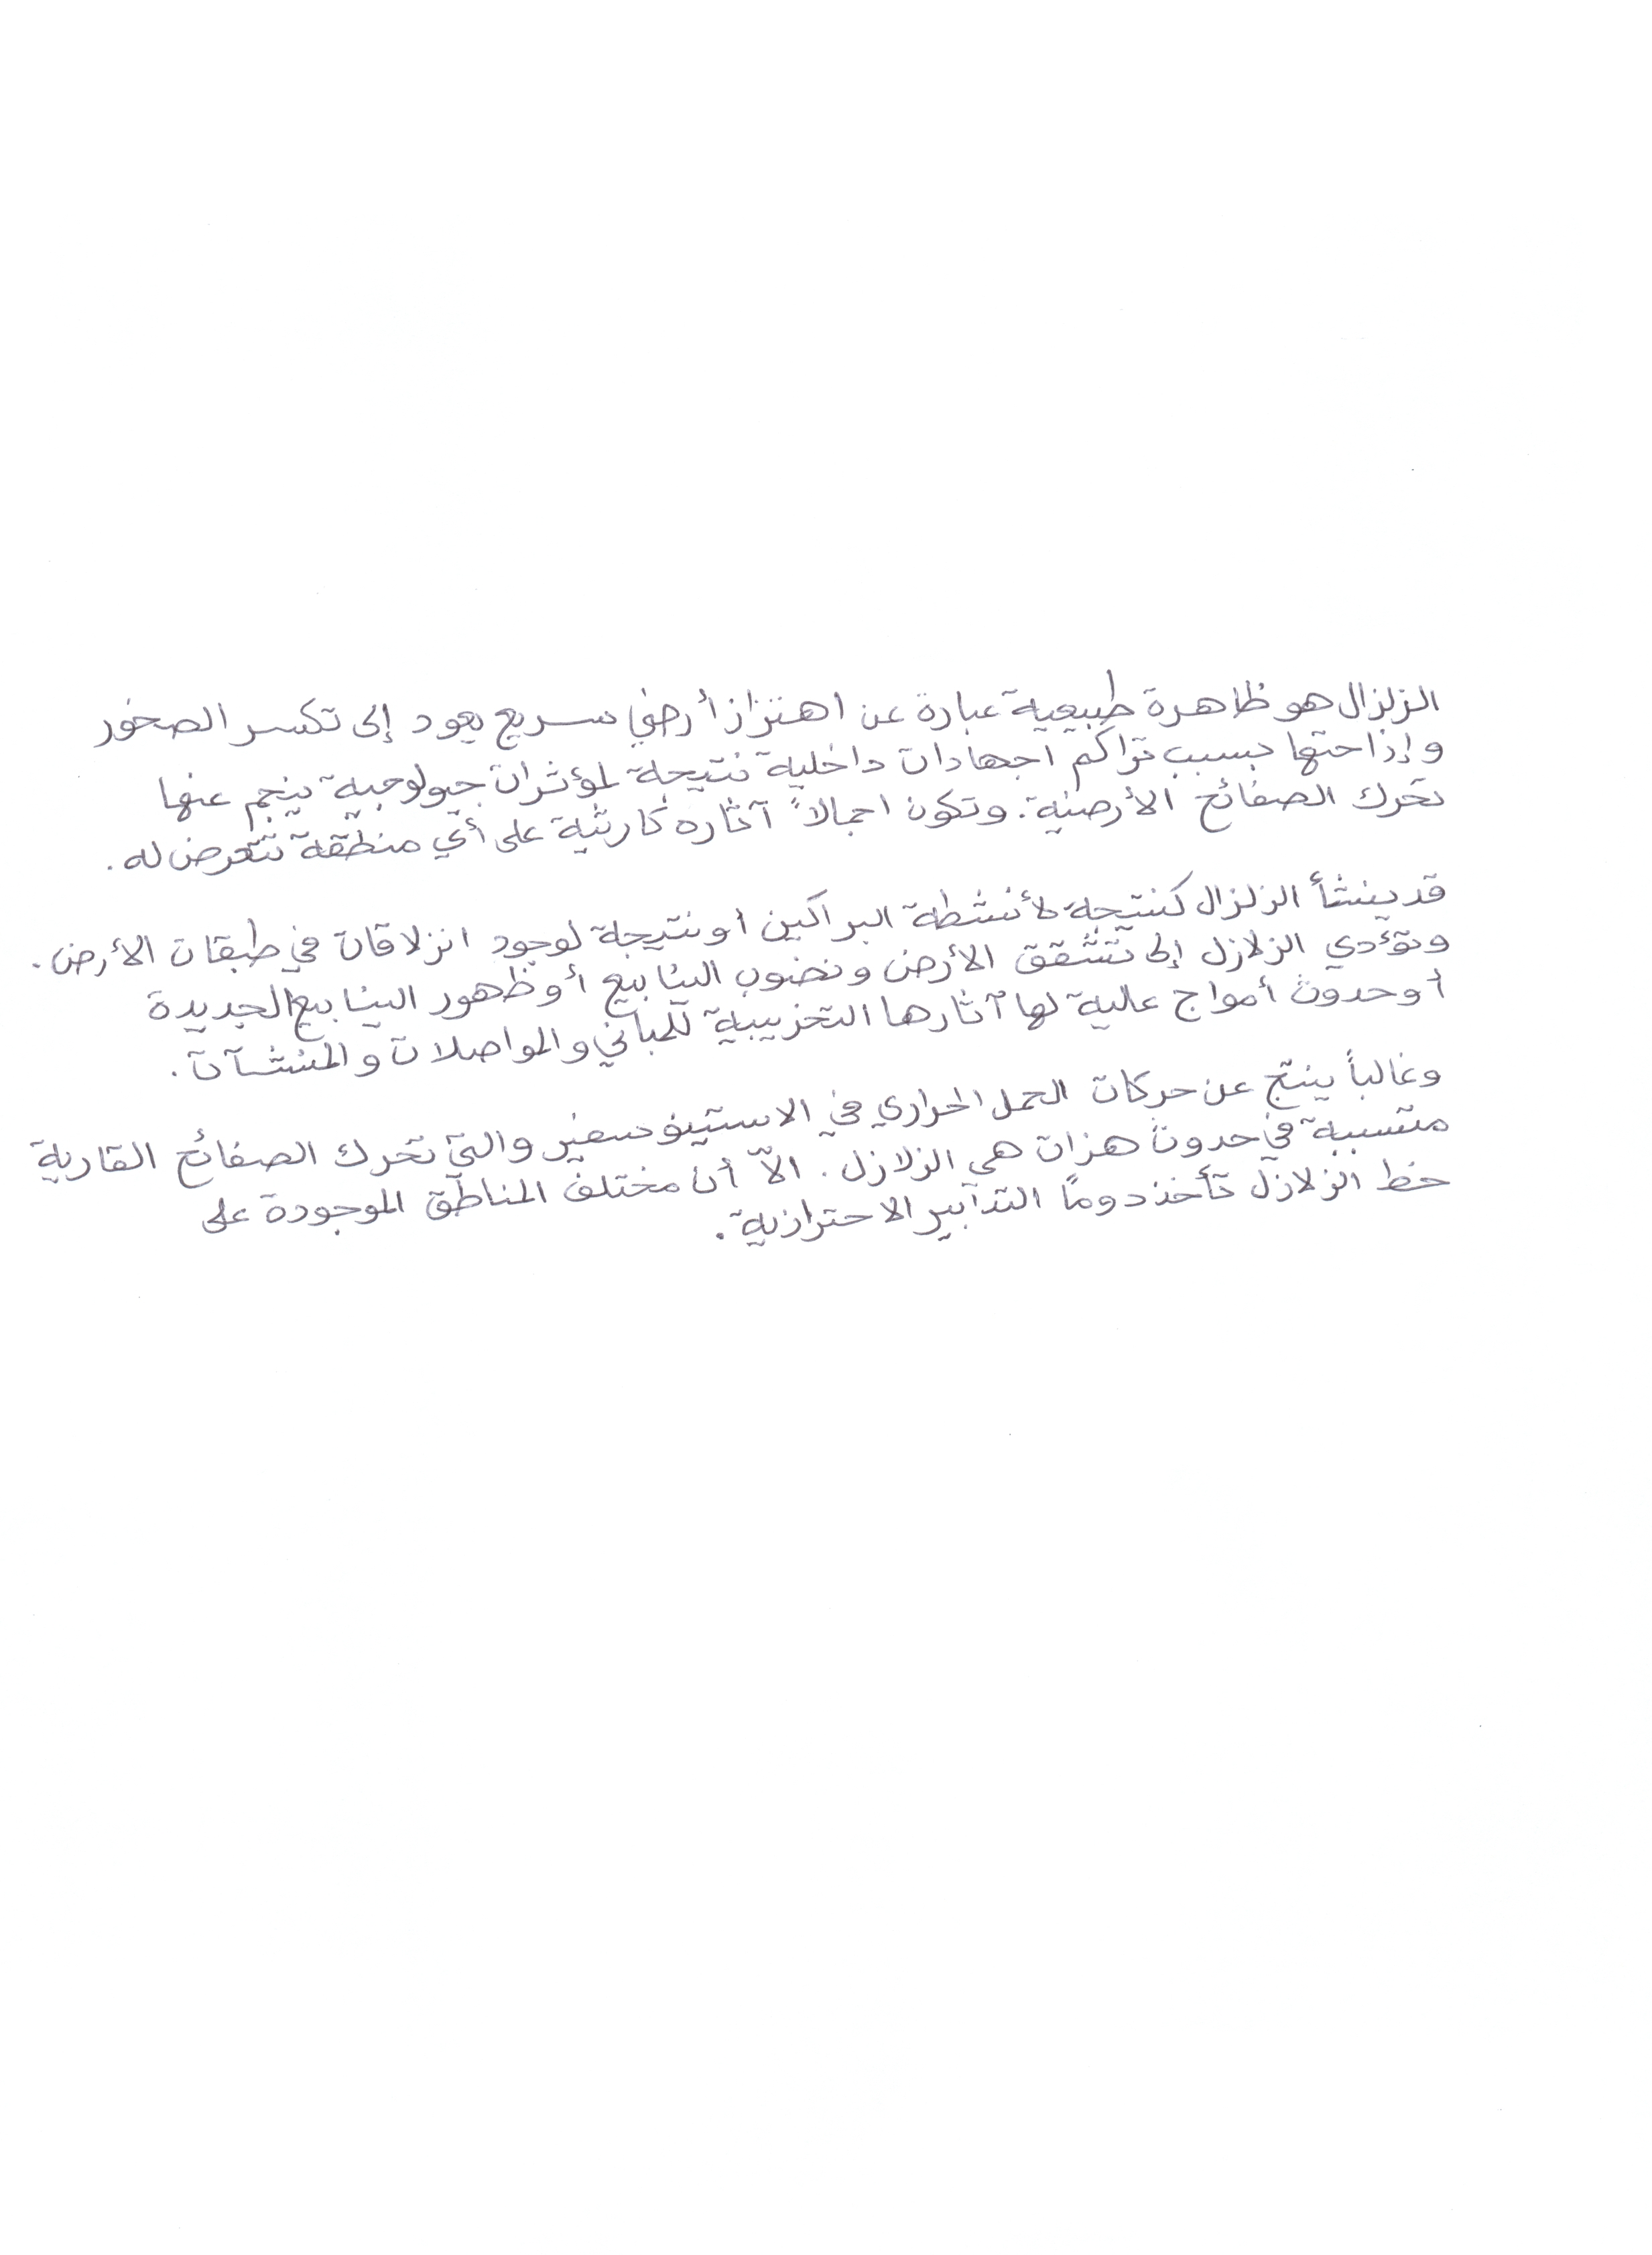 الزلزال هو ظاهرة طبيعية عبارة عن اهتزاز أرضي سريع يعود إلى تكسر الصخور
وإزاحتها بسبب تراكم اجهادات داخلية نتيجة لمؤثرات جيولوجية ينجم عنها
تحرك الصفائح الأرضية. وتكون اجمالاً آثاره كارثية على أي منطقة تتعرض له.
قد ينشأ الزلزال كنتيجة لأنشطة البراكين أو نتيجة لوجود انزلاقات في طبقات الأرض.
وتؤدي الزلازل إلى تشقق الأرض ونضوب الينابيع أو ظهور الينابيع الجديدة
أو حدوث أمواج عالية لها آثارها التخريبية للمباني والمواصلات والمنشآت.
وغالباً ينتج عن حركات الحمل الحراري في الاستينوسفير والتي تحرك الصفائح القارية
متسببة في حدوث هزات هي الزلازل. الاّ أن مختلف المناطق الموجودة على
خط الزلازل تأخذ دوماً التدابير الاحترازية.